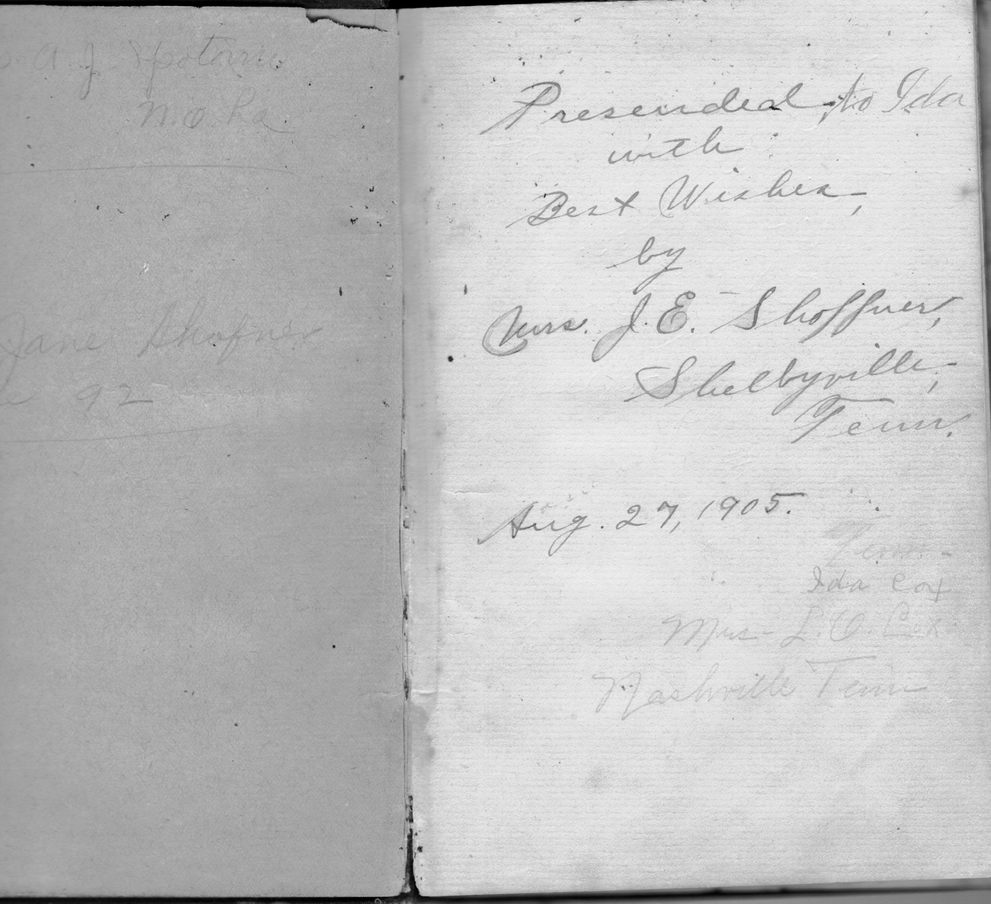 A. J.
Jane Shofner
92
Presended to Ida
with
Best Wishes,
by
Mrs. J. E. Shoffner,
Shelbyville,
Tenn.
Aug. 27, 1905.
Tenn.
Ida Cox
Mrs- L. O. Cox
Nashville Tenn